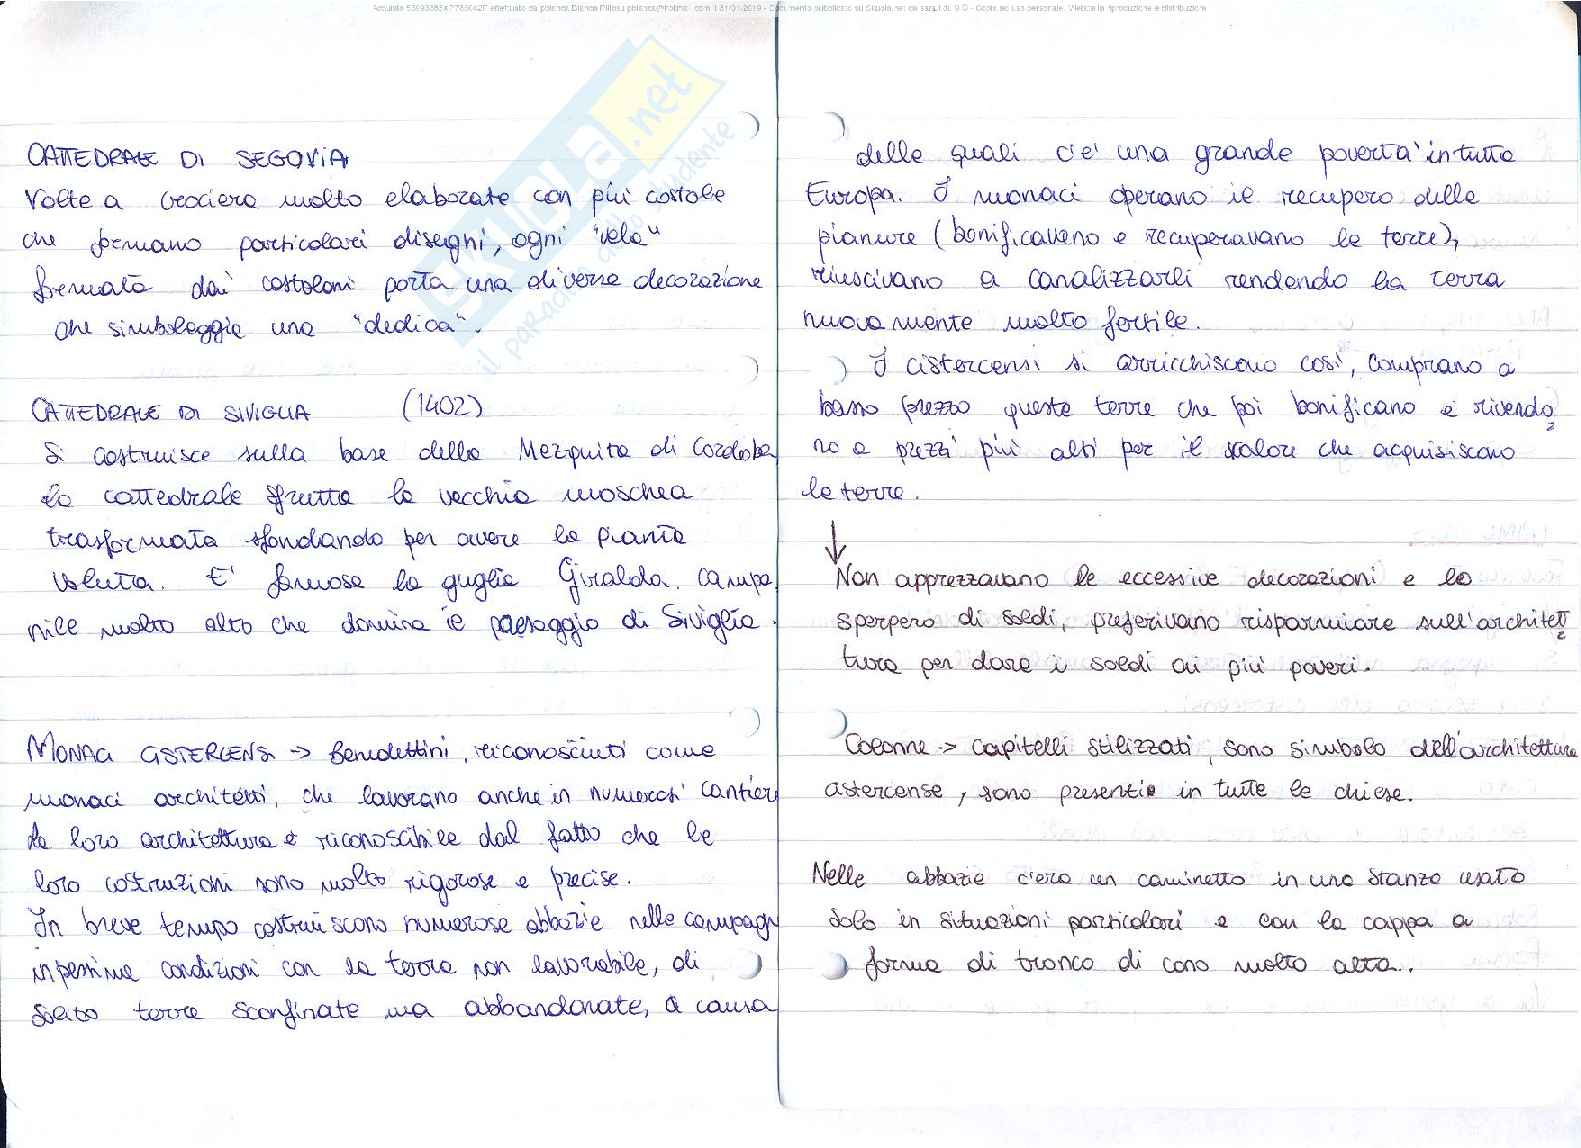 CATTEDRALE DI SEGOVIA
Volte a crociera molto elaborate con più costole
che formano particolari disegni, ogni "vela"
formata dai costoloni porta una diversa decorazione
che simboleggia una "dedica".
CATTEDRALE DI SIVIGLIA (1402)
Si costruisce sulla base della Mezquita di Cordoba
la cattedrale sfrutta la vecchia moschea
trasformata sfondando per avere la pianta
voluta. E' famosa la guglia Giralda. campa
nile molto alto che domina il paesaggio di Siviglia.
MONACI CISTERCENSI → Benedettini, riconosciuti come
monaci architetti, che lavorano anche in numerosi cantieri
La loro architettura è riconoscibile dal fatto che le
loro costruzioni sono molto rigorose e precise.
In breve tempo costruiscono numerose abbazie nelle campagne
in pessime condizioni con la terra non lavorabile, di
solito terre sconfinate ma abbandonate, a causa
delle quali c'è una grande povertà in tutta
Europa. I monaci operano il recupero delle
pianure (bonificavano e recuperavano le terre),
riuscivano a canalizzarli rendendo la terra
nuovamente molto fertile.
I cistercensi si arricchiscono così, comprano a
basso prezzo queste terre che poi bonificano e rivendo
no a prezzi più alti per il valore che acquisiscono
le terre.
↓
Non apprezzavano le eccessive decorazioni e lo
sperpero di soldi, preferivano risparmiare sull'architet
tura per dare i soldi ai più poveri.
Colonne → capitelli stilizzati, sono simbolo dell'architettura
cistercense, sono presenti in tutte le chiese.
Nelle abbazie c'era un caminetto in una stanza usato
solo in situazioni particolari e con la cappa a
forma di tronco di cono molto alta.
skuola.net
il paradiso dello studente